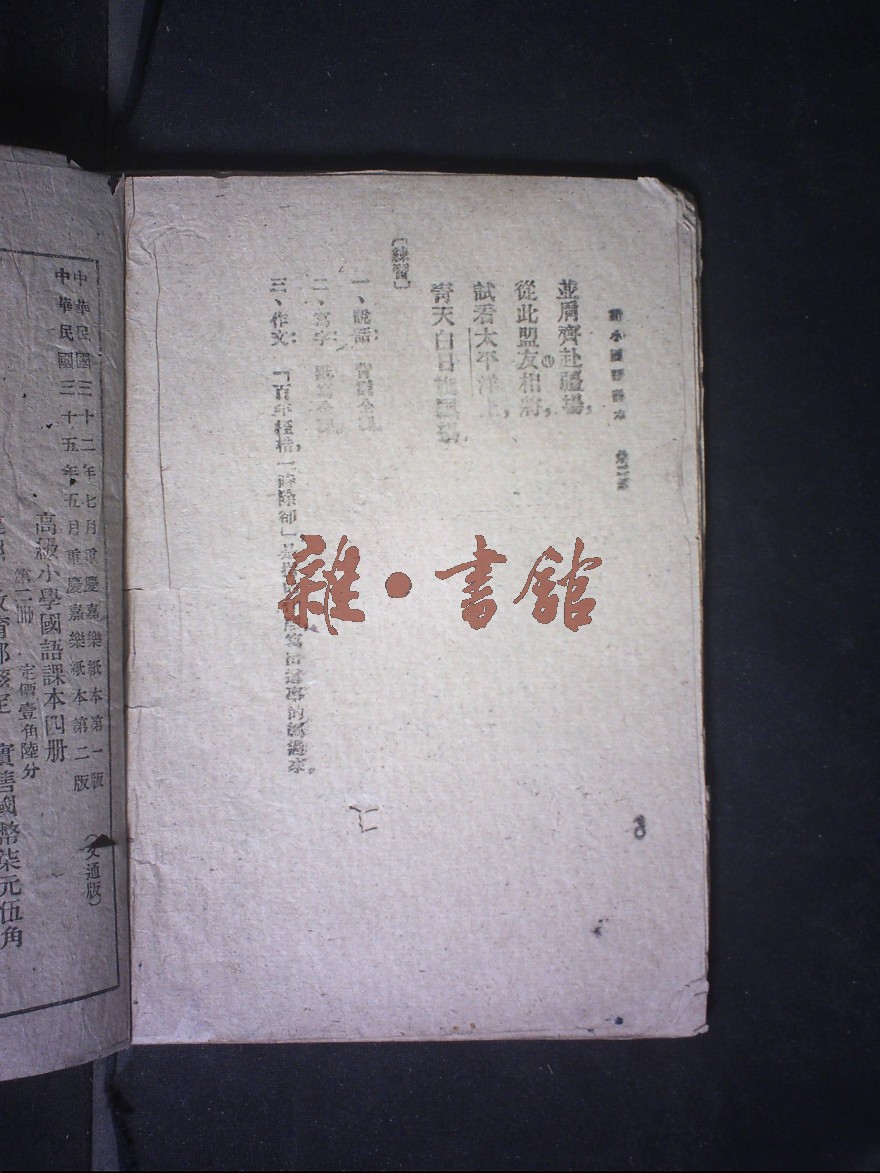 高小國語課本
並肩齊赴疆場，
從此盟友相將，
試看太平洋上，
青天白日旗飄揚。
［練習］
一、說話：背誦全課。
二、寫字：默寫全課。
三、作文：「百年桎梏，一齊除卻」
8
雜·書館
中華民國三十二年七月重慶嘉樂紙本第一版
中華民國三十五年五月重慶嘉樂紙本第二版
（交通版）
高級小學國語課本四册
第二冊　定價壹角陸分
實售國幣柒元伍角